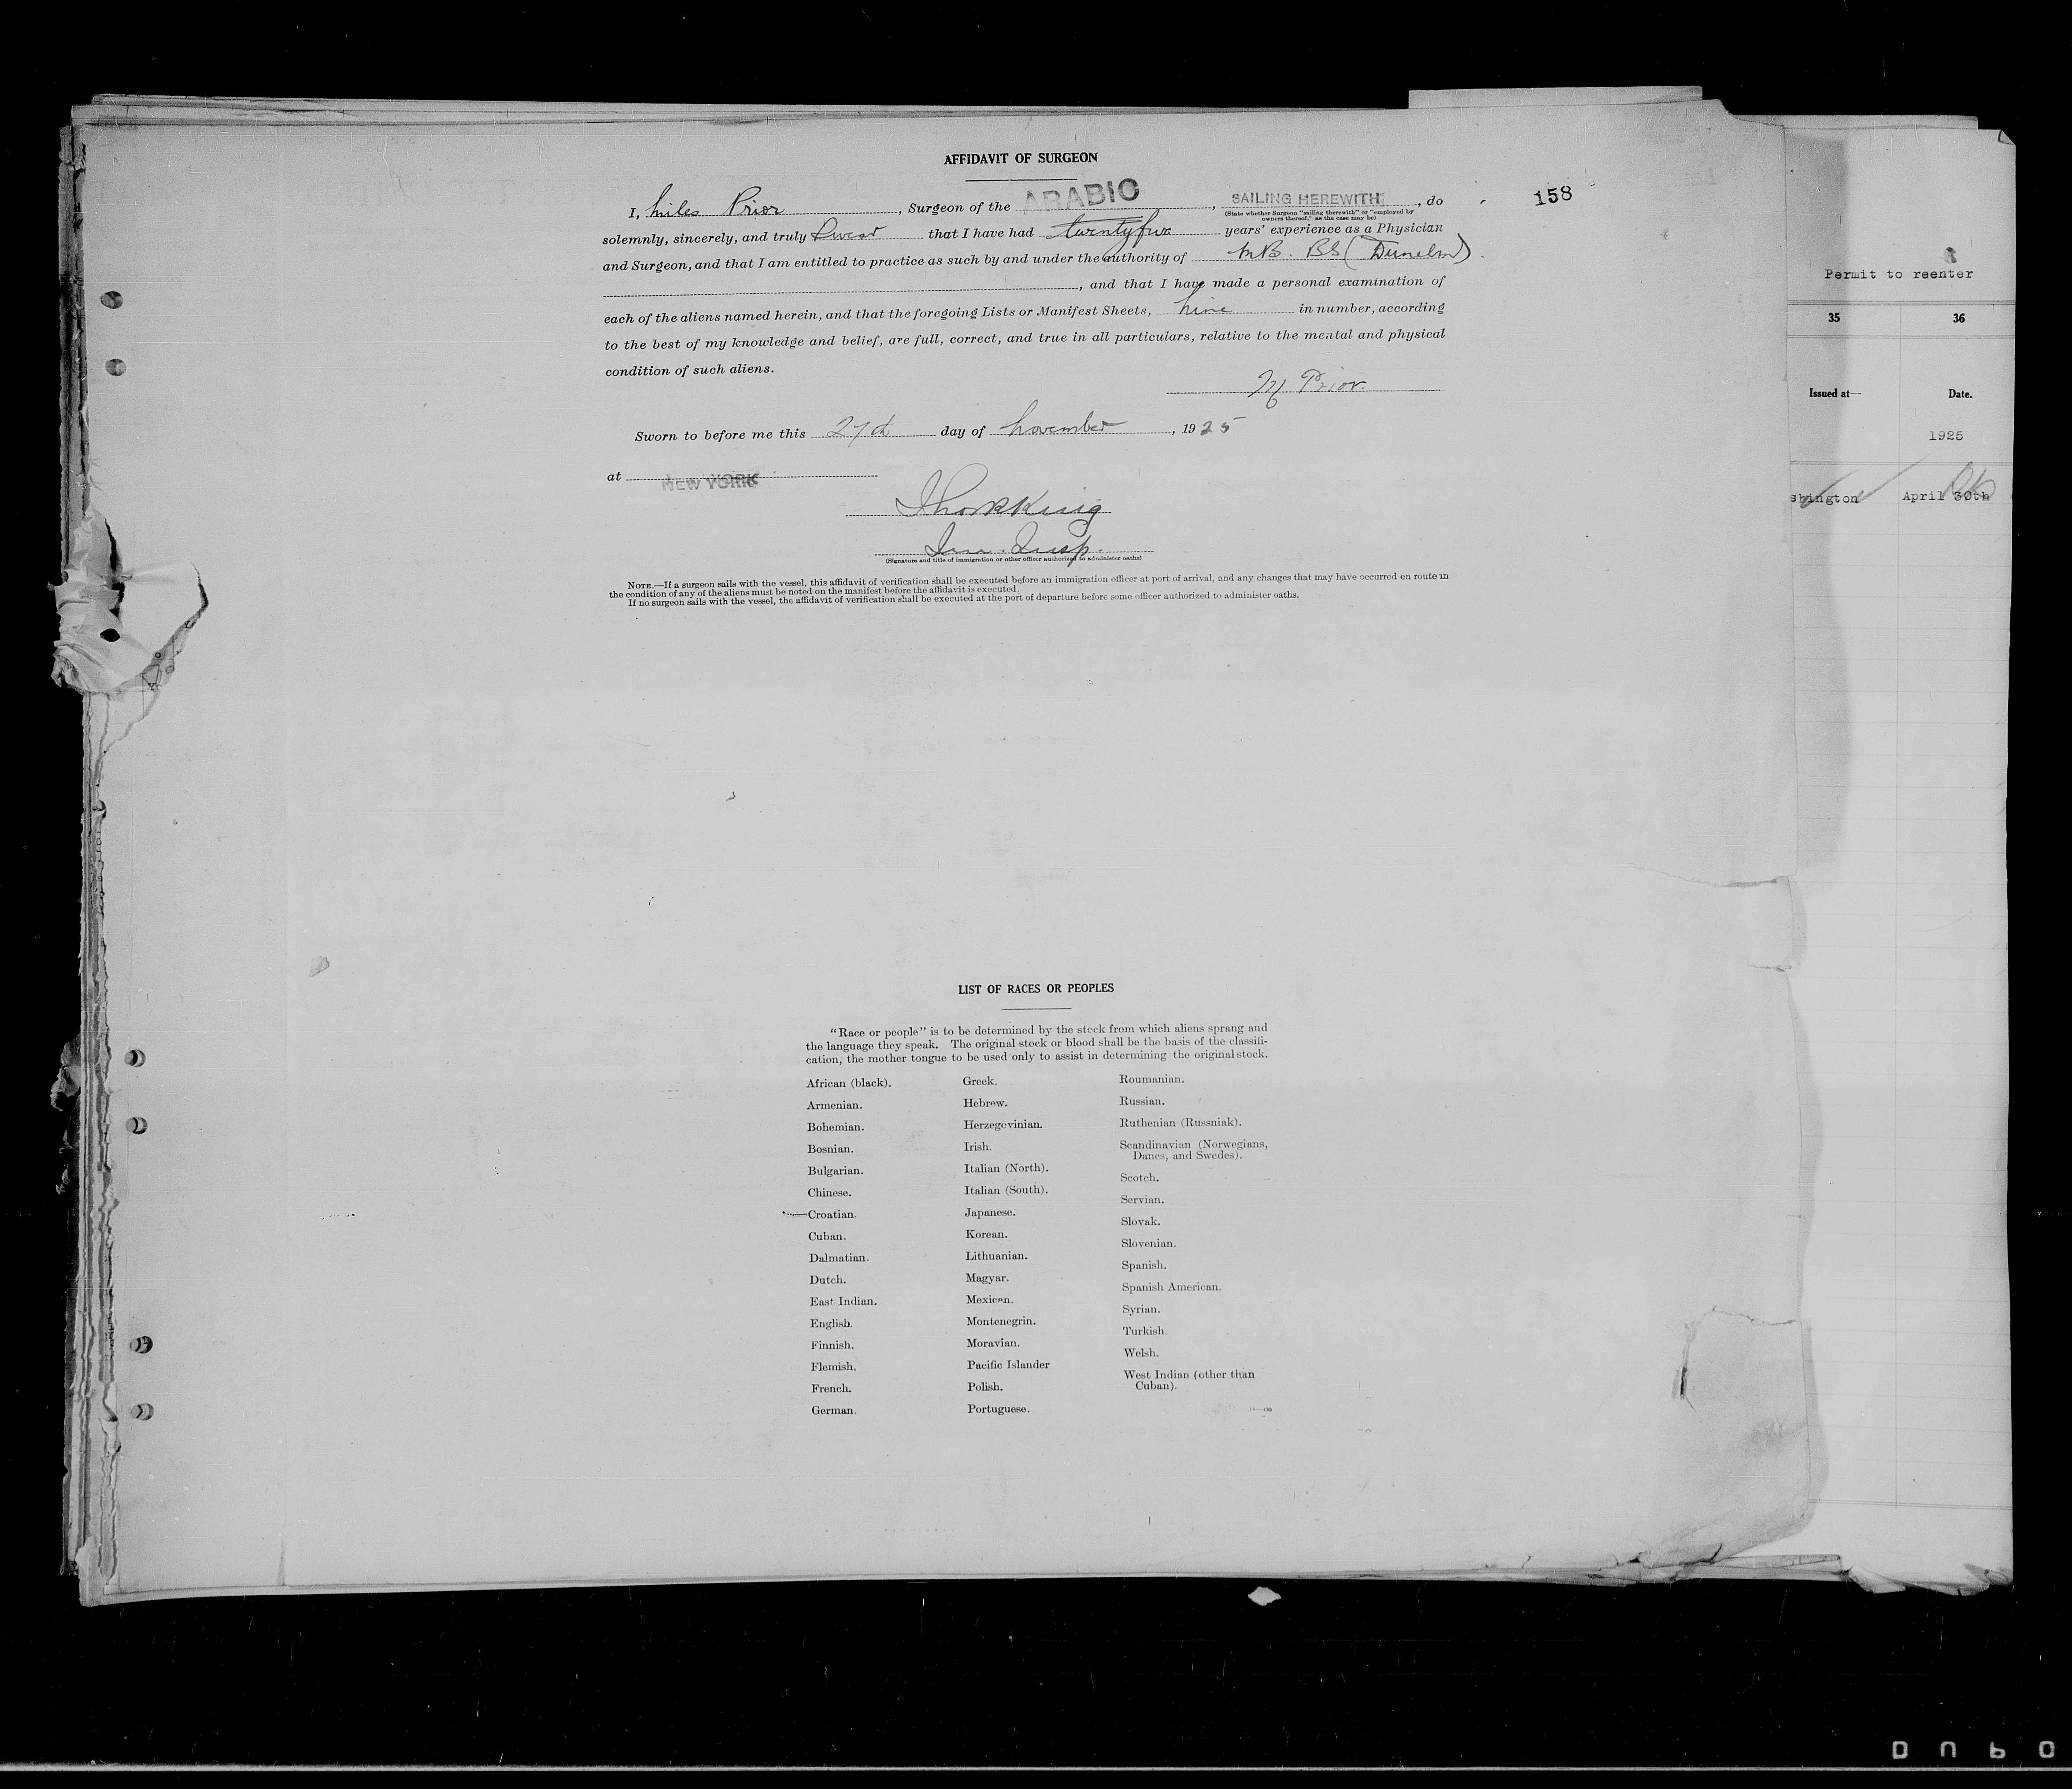 AFFIDAVIT OF SURGEON
158
I, Miles Prior, Surgeon of the ARABIC, SAILING HEREWITH, do
(State whether Surgeon "sailing therewith" or "employed by
owners thereof," as the case may be)
solemnly, sincerely, and truly Swear that I have had twentyfive years' experience as a Physician
and Surgeon, and that I am entitled to practice as such by and under the authority of M.B. BS (Dunelm)
, and that I have made a personal examination of
each of the aliens named herein, and that the foregoing Lists or Manifest Sheets, nine in number, according
to the best of my knowledge and belief, are full, correct, and true in all particulars, relative to the mental and physical
condition of such aliens.
M Prior.
Sworn to before me this 27th day of November, 1925
at NEW YORK
King
Imm. Insp.
(Signature and title of immigration or other officer authorized to administer oaths)
NOTE.—If a surgeon sails with the vessel, this affidavit of verification shall be executed before an immigration officer at port of arrival, and any changes that may have occurred en route in
the condition of any of the aliens must be noted on the manifest before the affidavit is executed.
If no surgeon sails with the vessel, the affidavit of verification shall be executed at the port of departure before some officer authorized to administer oaths.
LIST OF RACES OR PEOPLES
"Race or people" is to be determined by the stock from which aliens sprang and
the language they speak. The original stock or blood shall be the basis of the classifi-
cation, the mother tongue to be used only to assist in determining the original stock.
African (black).
Armenian.
Bohemian.
Bosnian.
Bulgarian.
Chinese.
Croatian.
Cuban.
Dalmatian.
Dutch.
East Indian.
English.
Finnish.
Flemish.
French.
German.
Greek.
Hebrew.
Herzegovinian.
Irish.
Italian (North).
Italian (South).
Japanese.
Korean.
Lithuanian.
Magyar.
Mexican.
Montenegrin.
Moravian.
Pacific Islander
Polish.
Portuguese.
Roumanian.
Russian.
Ruthenian (Russniak).
Scandinavian (Norwegians,
Danes, and Swedes).
Scotch.
Servian.
Slovak.
Slovenian.
Spanish.
Spanish American.
Syrian.
Turkish.
Welsh.
West Indian (other than
Cuban).
Permit to reenter
35 36
Issued at— Date.
1925
shington April 30th